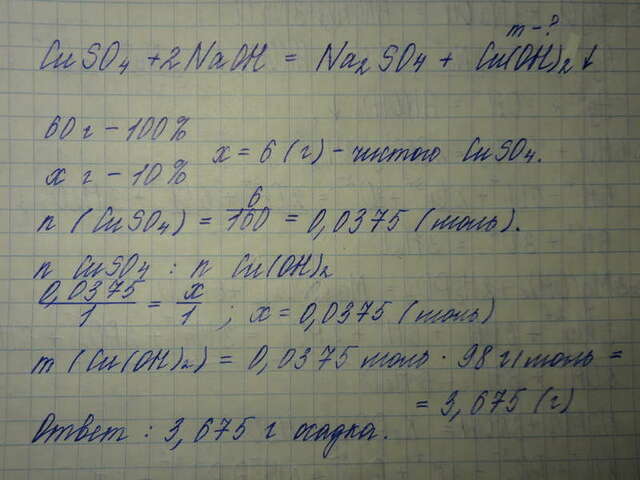 m - ?
CuSO₄ + 2NaOH = Na₂SO₄ + Cu(OH)₂↓
60 г - 100%
x г - 10%
x = 6 (г) - чистого CuSO₄.
n (CuSO₄) = 6/160 = 0,0375 (моль).
n CuSO₄ : n Cu(OH)₂
0,0375/1 = x/1 ; x = 0,0375 (моль)
m (Cu(OH)₂) = 0,0375 моль · 98 г/моль =
= 3,675 (г)
Ответ : 3,675 г осадка.